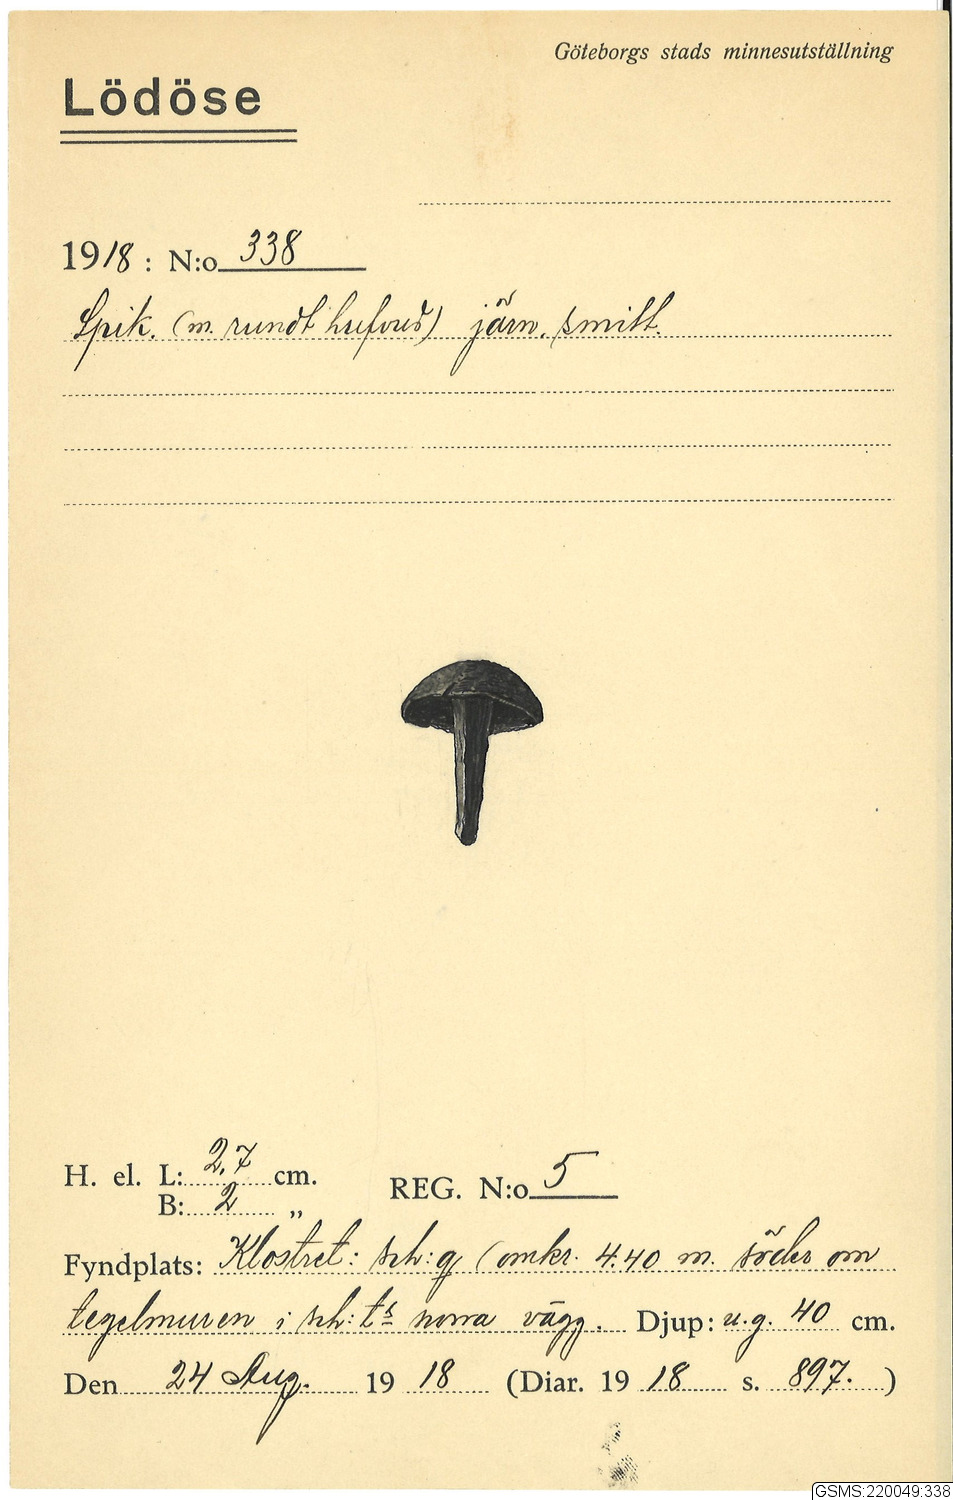 Göteborgs stads minnesutställning
Lödöse
1918 : N:o 338
Spik. (m. rundt hufvud) järn, smitt.
H. el. L: 2,7 cm.
B: 2 „
REG. N:o 5
Fyndplats: Klostret: sch: g (omkr. 4.40 m. söder om
tegelmuren i sch:ts norra vägg. Djup: u.g. 40 cm.
Den 24 Aug. 1918 (Diar. 1918 s. 897.)
GSMS:220049:338